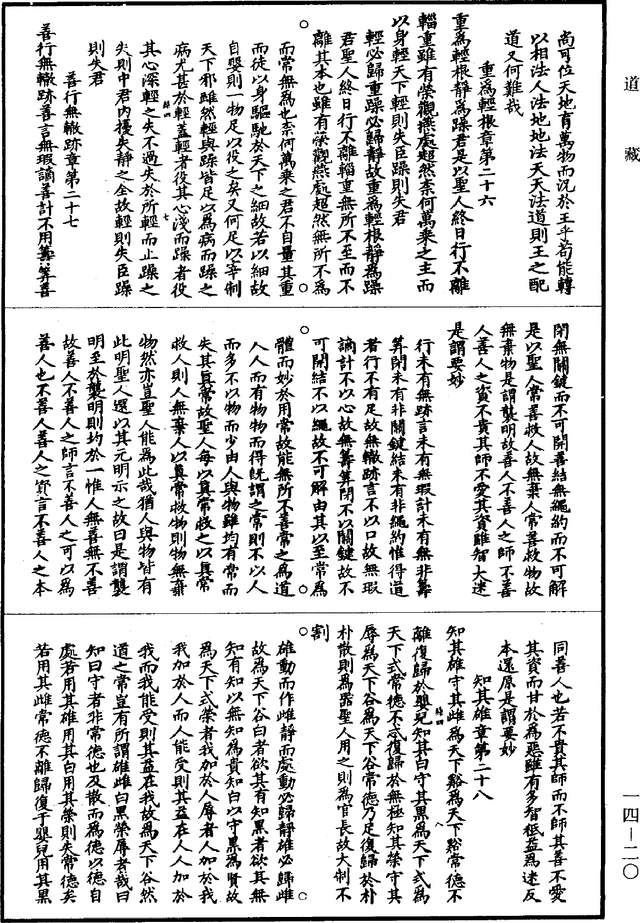 道藏
尚可位天地育萬物而況於王乎若能轉
以相法人法地地法天天法道則王之配
道又何難哉
重為輕根章第二十六
重為輕根靜為躁君是以聖人終日行不離
輜重雖有榮觀燕處超然奈何萬乘之主而
以身輕天下輕則失臣躁則失君
輕必歸重躁必歸靜故重為輕根靜為躁
君聖人終日行不離輜重無所不至而不
離其本也雖有榮觀燕處超然無所不為
而常無為也奈何萬乘之君不自量其重
而徒以身驅馳於天下之細故若以細故
自嬰則一物足以役之矣又何足以宰制
天下邪雖然輕與躁皆足以為病而躁之
病尤甚於輕蓋輕者役其心淺而躁者役
其心深輕之失不過失於所輕而止躁之
失則中君內擾失靜之全故輕則失臣躁
則失君
善行無轍跡章第二十七
善行無轍跡善言無瑕謫善計不用籌筭善
閉無關鍵而不可開善結無繩約而不可解
是以聖人常善救人故無棄人常善救物故
無棄物是謂襲明故善人不善人之師不善
人善人之資不貴其師不愛其資雖智大迷
是謂要妙
行未有無跡言未有無瑕計未有無非籌
筭閉未有非關鍵結未有非繩約惟得道
者行不有足故無轍跡言不以口故無瑕
謫計不以心故無籌筭閉不以關鍵故不
可開結不以繩故不可解由其以至常為
體而妙於用常故能無所不善常之為道
人人而有物物而得旣謂之常則不以人
而多不以物而少由人與物雖均有常而
失其真常故聖人每以真常救之以真常
救人則人無棄人以真常救物則物無棄
物然亦豈聖人能為此哉猶人與物皆有
此明聖人還以其元明示之故曰是謂襲
明至於襲明則均於一惟人無善無不善
故善人不善人之師言不善人之可以為
善人也不善人善人之資言不善人之本
同善人也若不貴其師而不師其善不愛
其資而甘於為惡雖有多智秪益為迷反
本還原是謂要妙
知其雄章第二十八
知其雄守其雌為天下谿為天下谿常德不
離復歸於嬰兒知其白守其黑為天下式為
天下式常德不忒復歸於無極知其榮守其
辱為天下谷為天下谷常德乃足復歸於朴
朴散則為器聖人用之則為官長故大制不
割
雄動而作雌靜而處動必歸靜雄必歸雌
故為天下谷白者欲其有知黑者欲其無
知有知以無知為貴知白以守黑為賢故
為天下式榮者我加於人辱者人加於我
我加於人而人能受則其益在人人加於
我而我能受則其益在我故為天下谷然
道之常豈有所謂雄雌白黑榮辱者哉曰
知曰守者非常德也及散而為德以德自
處若用其雄用其白用其榮則失常德矣
若用其雌常德不離歸復于嬰兒用其黑
一四-二〇